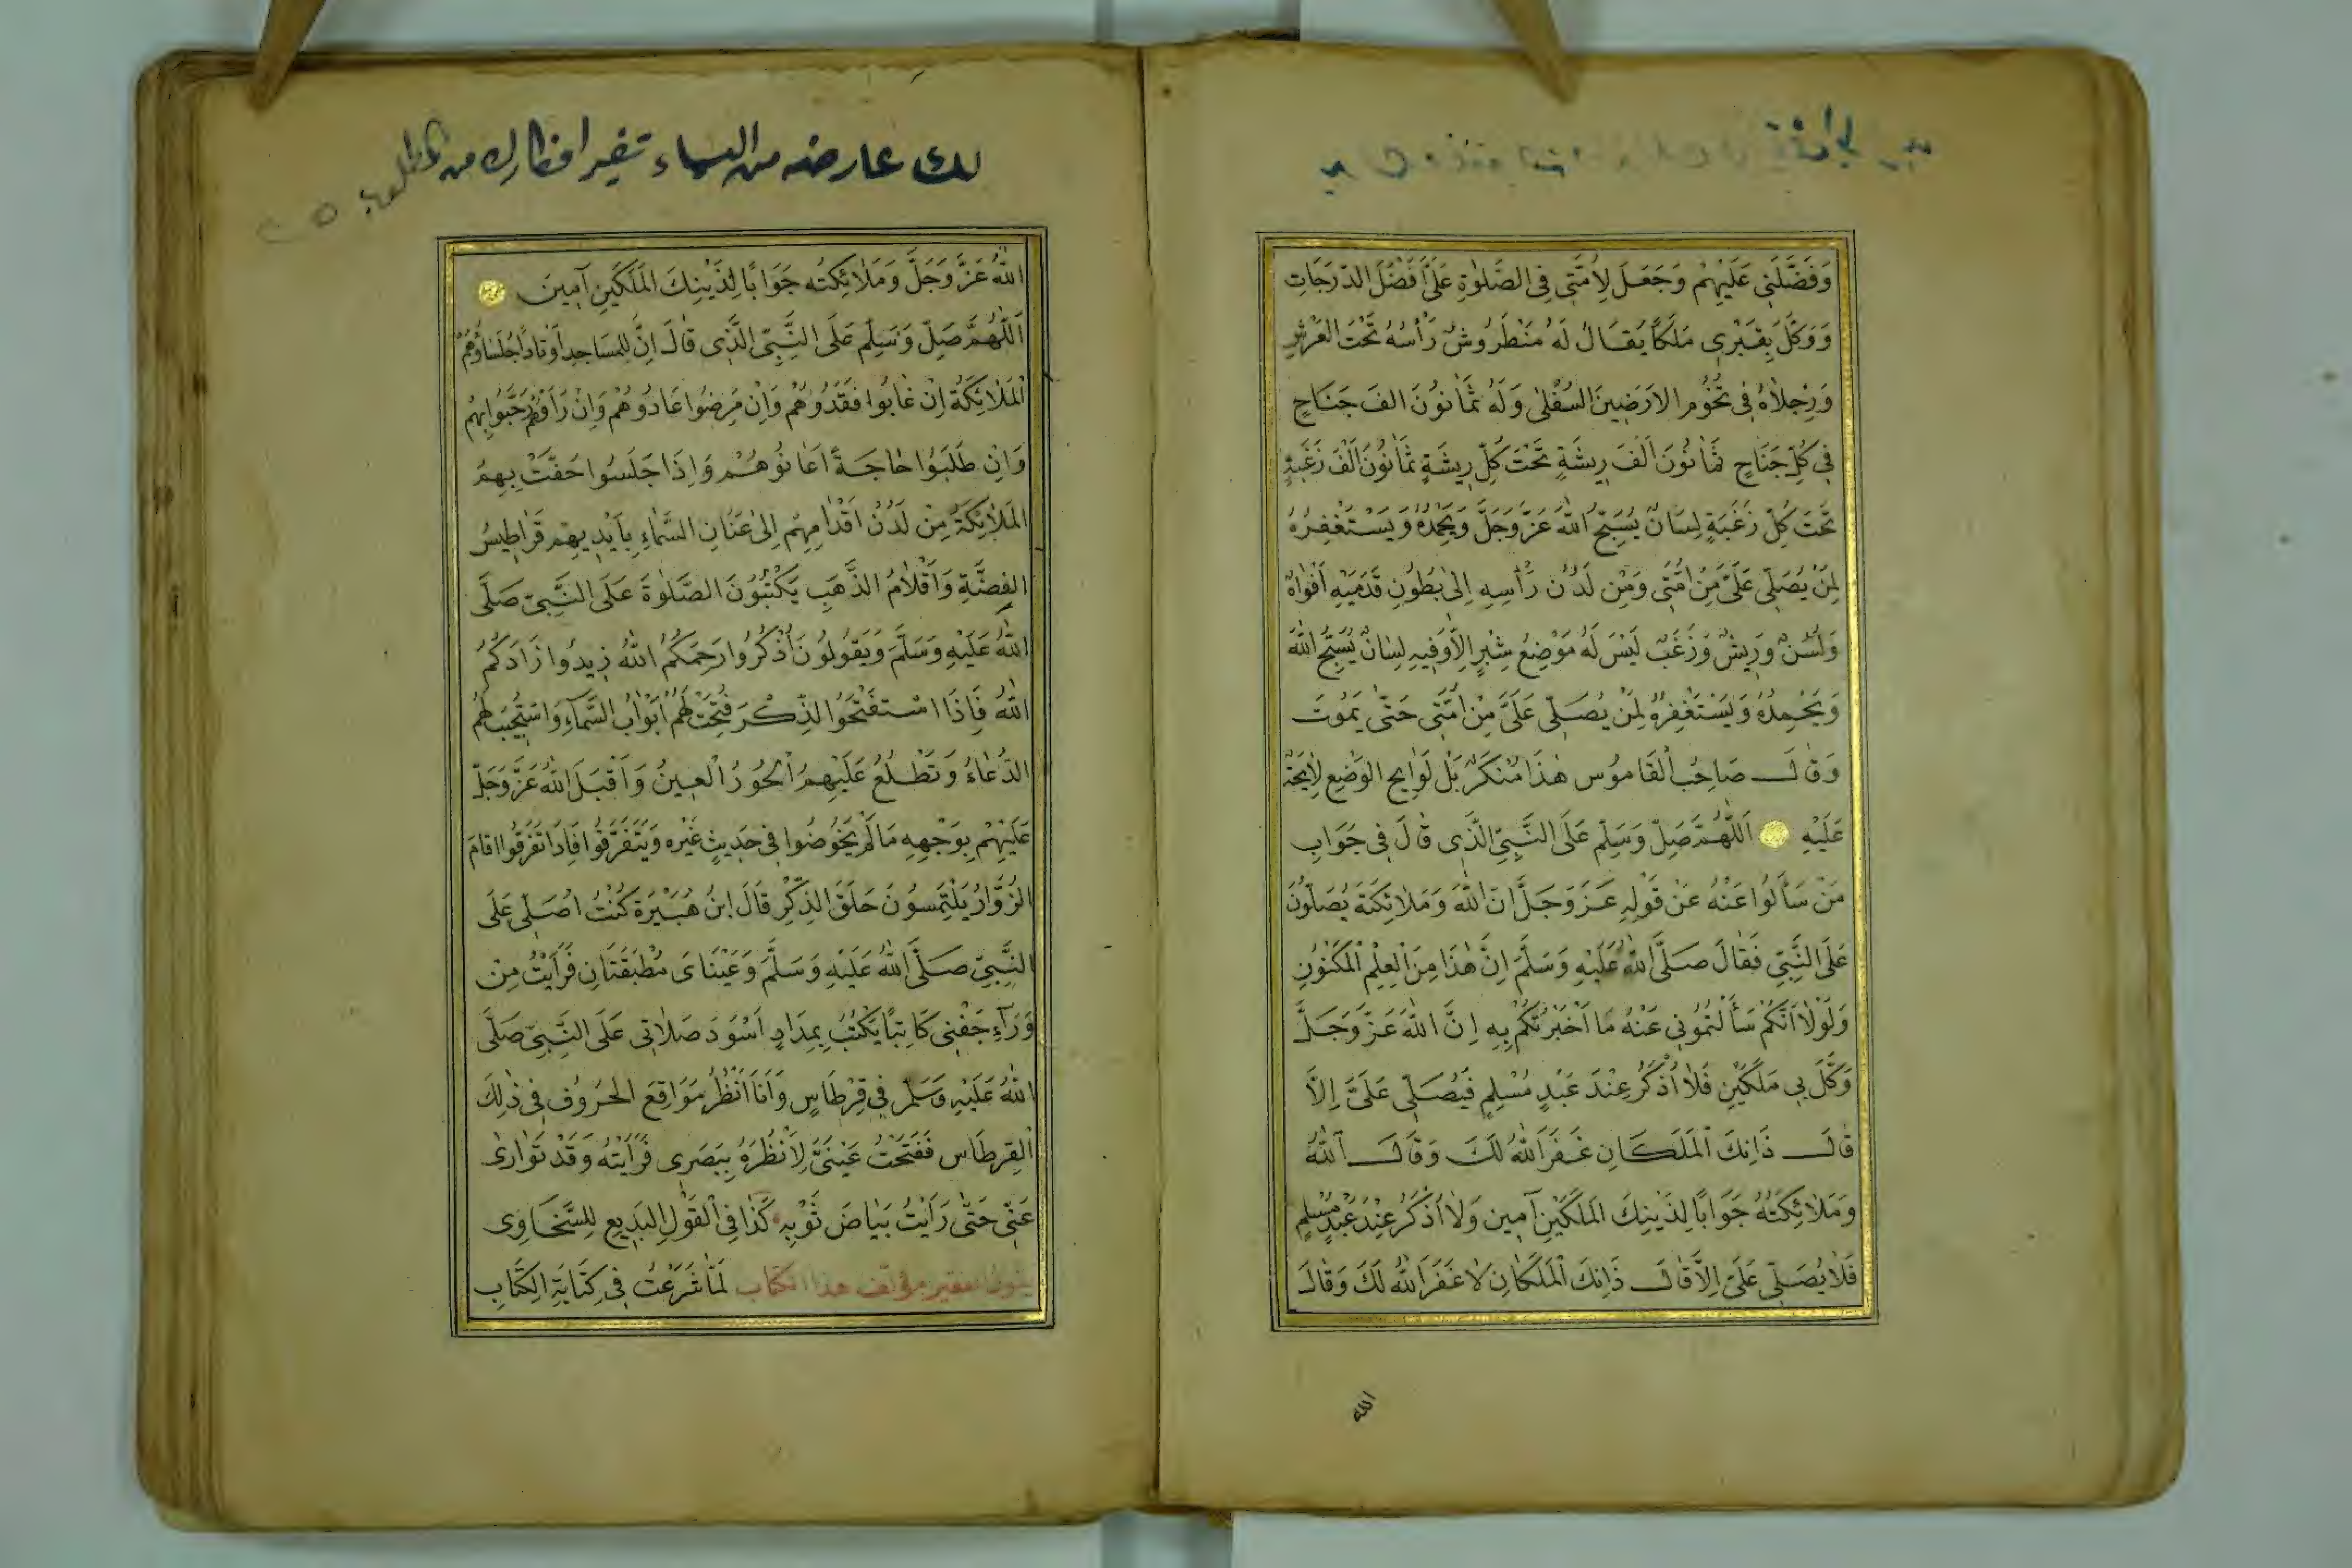 وَفَضَّلَنِي عَلَيْهِمْ وَجَعَلَ لِأُمَّتِي فِي الصَّلٰوةِ عَلَيَّ اَفْضَلَ الدَّرَجَاتِ
وَوَكَّلَ بِقَبْرِي مَلَكًا يُقَالُ لَهُ مَنْطَرُوشُ رَأْسُهُ تَحْتَ الْعَرْشِ
وَرِجْلَاهُ فِي تُخُومِ الْاَرَضِينَ السُّفْلٰى وَلَهُ ثَمَانُونَ اَلْفَ جَنَاحٍ
فِي كُلِّ جَنَاحٍ ثَمَانُونَ اَلْفَ رِيشَةٍ تَحْتَ كُلِّ رِيشَةٍ ثَمَانُونَ اَلْفَ زَغَبَةٍ
تَحْتَ كُلِّ زَغَبَةٍ لِسَانٌ يُسَبِّحُ اللّٰهَ عَزَّ وَجَلَّ وَيَحْمَدُهُ وَيَسْتَغْفِرُهُ
لِمَنْ يُصَلِّي عَلَيَّ مِنْ اُمَّتِي وَمِنْ لَدُنْ رَأْسِهِ اِلٰى بُطُونِ قَدَمَيْهِ اَفْوَاهٌ
وَلُسُنٌ وَرِيشٌ وَزَغَبٌ لَيْسَ لَهُ مَوْضِعُ شِبْرٍ اِلَّا وَفِيهِ لِسَانٌ يُسَبِّحُ اللّٰهَ
وَيَحْمَدُهُ وَيَسْتَغْفِرُهُ لِمَنْ يُصَلِّي عَلَيَّ مِنْ اُمَّتِي حَتّٰى يَمُوتَ
وَقَالَ صَاحِبُ الْقَامُوس هٰذَا مُنْكَرٌ بَلْ لَوَايِحُ الْوَضْعِ لَايِحَةٌ
عَلَيْهِ اَللّٰهُمَّ صَلِّ وَسَلِّمْ عَلَى النَّبِيِّ الَّذِي قَالَ فِي جَوَابِ
مَنْ سَأَلُوا عَنْهُ عَنْ قَوْلِهِ عَزَّ وَجَلَّ اِنَّ اللّٰهَ وَمَلَائِكَتَهُ يُصَلُّونَ
عَلَى النَّبِيِّ فَقَالَ صَلَّى اللّٰهُ عَلَيْهِ وَسَلَّمَ اِنَّ هٰذَا مِنَ الْعِلْمِ الْمَكْنُونِ
وَلَوْلَا اَنَّكُمْ سَأَلْتُمُونِي عَنْهُ مَا اَخْبَرْتُكُمْ بِهِ اِنَّ اللّٰهَ عَزَّ وَجَلَّ
وَكَّلَ بِي مَلَكَيْنِ فَلَا اُذْكَرُ عِنْدَ عَبْدٍ مُسْلِمٍ فَيُصَلِّي عَلَيَّ اِلَّا
قَالَ ذَانِكَ الْمَلَكَانِ غَفَرَ اللّٰهُ لَكَ وَقَالَ اللّٰهُ
وَمَلَائِكَتُهُ جَوَابًا لِذَيْنِكَ الْمَلَكَيْنِ آمِين وَلَا اُذْكَرُ عِنْدَ عَبْدٍ مُسْلِمٍ
فَلَا يُصَلِّي عَلَيَّ اِلَّا قَالَ ذَانِكَ الْمَلَكَانِ لَا غَفَرَ اللّٰهُ لَكَ وَقَالَ
الله
لك عارضه من السماء
اللّٰهُ عَزَّ وَجَلَّ وَمَلَائِكَتُه جَوَابًا لِذَيْنِكَ الْمَلَكَيْنِ آمِينَ
اَللّٰهُمَّ صَلِّ وَسَلِّمْ عَلَى النَّبِيِّ الَّذِي قَالَ اِنَّ لِلْمَسَاجِدِ اَوْتَادًا جُلَسَاؤُهُمُ
الْمَلَائِكَةُ اِنْ غَابُوا فَقَدُوهُمْ وَاِنْ مَرِضُوا عَادُوهُمْ وَاِنْ رَاَوْهُمْ رَحَّبُوا بِهِمْ
وَاِنْ طَلَبُوا حَاجَةً اَعَانُوهُمْ وَاِذَا جَلَسُوا حَفَّتْ بِهِمُ
الْمَلَائِكَةُ مِنْ لَدُنْ اَقْدَامِهِمْ اِلٰى عَنَانِ السَّمَاءِ بِاَيْدِيهِمْ قَرَاطِيسُ
الْفِضَّةِ وَاَقْلَامُ الذَّهَبِ يَكْتُبُونَ الصَّلٰوةَ عَلَى النَّبِيِّ صَلَّى
اللّٰهُ عَلَيْهِ وَسَلَّمَ وَيَقُولُونَ اُذْكُرُوا رَحِمَكُمُ اللّٰهُ زِيدُوا زَادَكُمُ
اللّٰهُ فَاِذَا اسْتَفْتَحُوا الذِّكْرَ فُتِحَتْ لَهُمْ اَبْوَابُ السَّمَاءِ وَاسْتُجِيبَ لَهُمُ
الدُّعَاءُ وَتَطْلُعُ عَلَيْهِمُ الْحُورُ الْعِينُ وَاَقْبَلَ اللّٰهُ عَزَّ وَجَلَّ
عَلَيْهِمْ بِوَجْهِهِ مَا لَمْ يَخُوضُوا فِي حَدِيثٍ غَيْرِه وَيَتَفَرَّقُوا فَاِذَا تَفَرَّقُوا اقَامَ
الزُّوَّارُ يَلْتَمِسُونَ حِلَقَ الذِّكْرِ قَالَ ابْنُ هُبَيْرَةَ كُنْتُ اُصَلِّي عَلَى
النَّبِيِّ صَلَّى اللّٰهُ عَلَيْهِ وَسَلَّمَ وَعَيْنَايَ مُطْبَقَتَانِ فَرَاَيْتُ مِنْ
وَرَاءِ جَفْنِي كَاتِبًا يَكْتُبُ بِمِدَادٍ اَسْوَدَ صَلَاتِي عَلَى النَّبِيِّ صَلَّى
اللّٰهُ عَلَيْهِ وَسَلَّمَ فِي قِرْطَاسٍ وَاَنَا اَنْظُرُ مَوَاقِعَ الْحُرُوفِ فِي ذٰلِكَ
الْقِرْطَاس فَفَتَحْتُ عَيْنَيَّ لِاَنْظُرَهُ بِبَصَرِي فَرَاَيْتُهُ وَقَدْ تَوَارٰى
عَنِّي حَتّٰى رَاَيْتُ بَيَاضَ ثَوْبِهِ كَذَا فِي الْقَوْلِ الْبَدِيعِ لِلسَّخَاوِي
يقول الفقير مؤلف هذا الكتاب لَمَّا شَرَعْتُ فِي كِتَابَةِ الْكِتَابِ